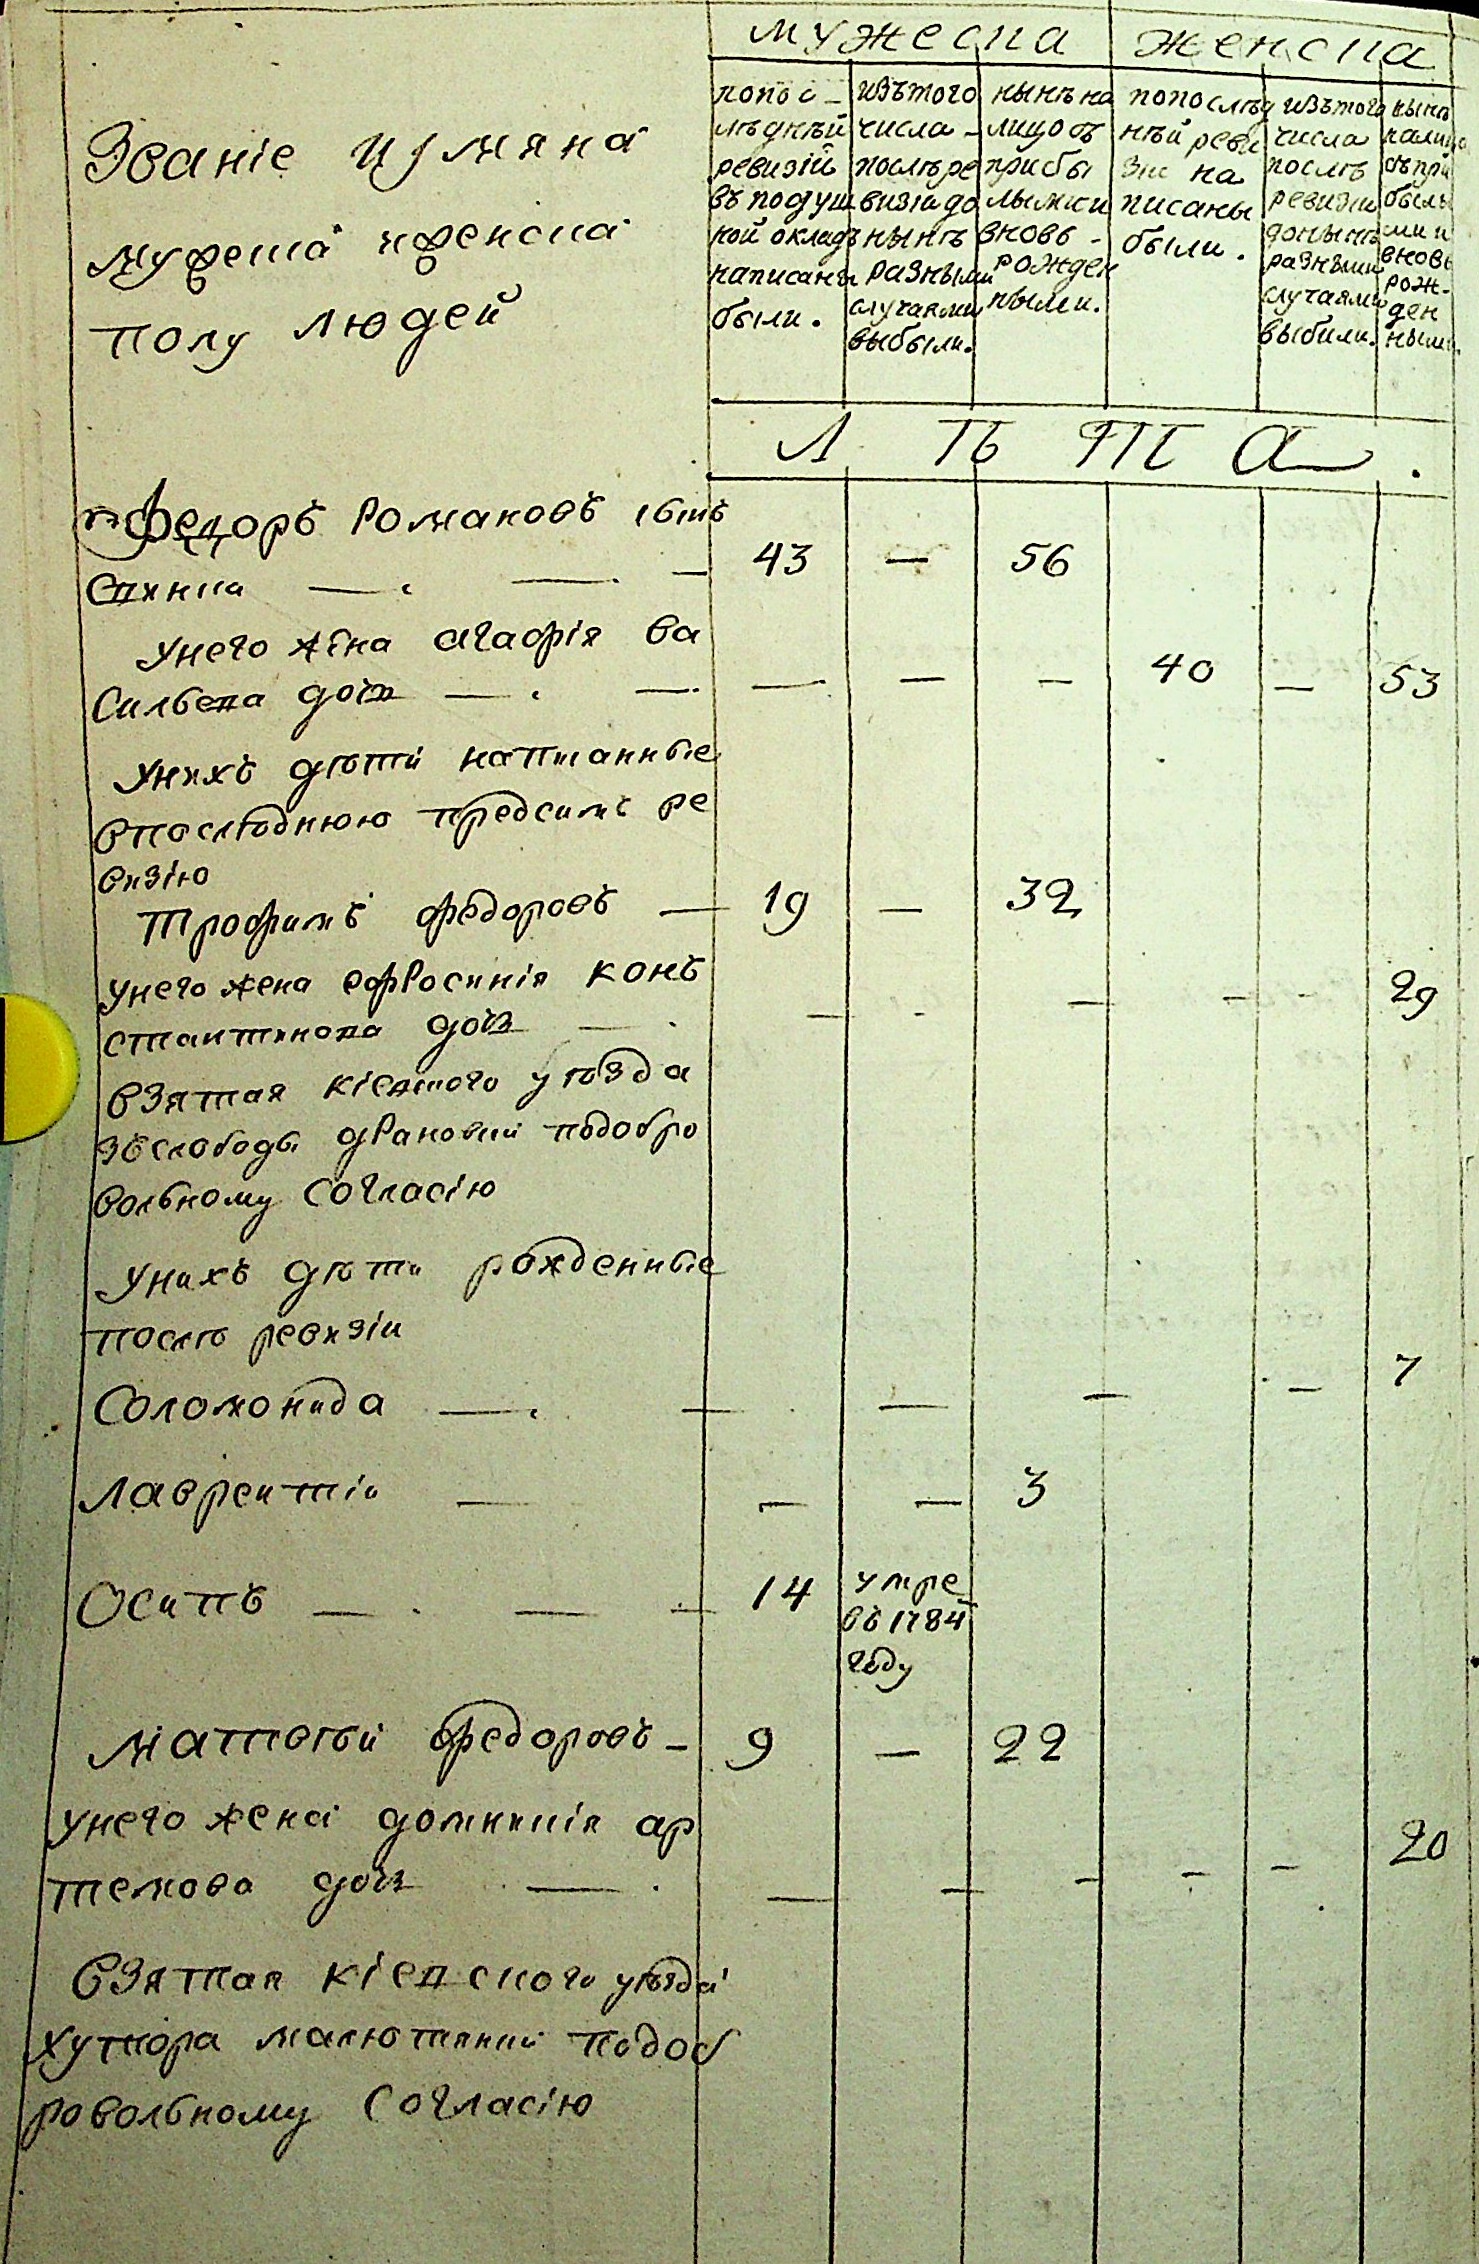 мужеска женска
Званіе и имяна
мужеска и женска
полу людей
по пос-
лѣднѣй
ревизіи
въ подуш
ной окладъ
написаны
были.
изъ того
числа
послѣ ре
визіи до
нынѣ
разными
случаями
выбыли.
нынѣ на
лицо съ
прибы
лыми и
вновь
рожден
ными.
по послѣд
нѣй реви
зіи на
писаны
были.
изъ того
числа
послѣ
ревизіи
до нынѣ
разными
случаями
выбили.
нынѣ
налицо
съ при
былы
ми и
вновь
рож-
ден
ными.
Л Ѣ Т А.
Федоръ Романовъ сынъ
43 — 56
У него жена Агафія ва
сильева дочь — — — — — 40 — 53
У нихъ дѣти написанные
впослѣднюю предсимъ ре
визію
Трофимъ Федоровъ — 19 — 32
У него жена Ефросинія конъ
стантинова дочь — 29
взятая кіевского уѣзда
зъ слободы подобро
вольному согласію
У нихъ дѣти рожденные
послѣ ревизіи
Соломонида — — — — — 7
Лаврентій — — — 3
Осипъ — — — 14 умре
въ 1784
году
Матвѣй Федоровъ — 9 — 22
У него жена Домникія ар
темова дочь — — — — — — 20
Взятая кіевского уѣзда
хутора малютянки подоб
ровольному согласію